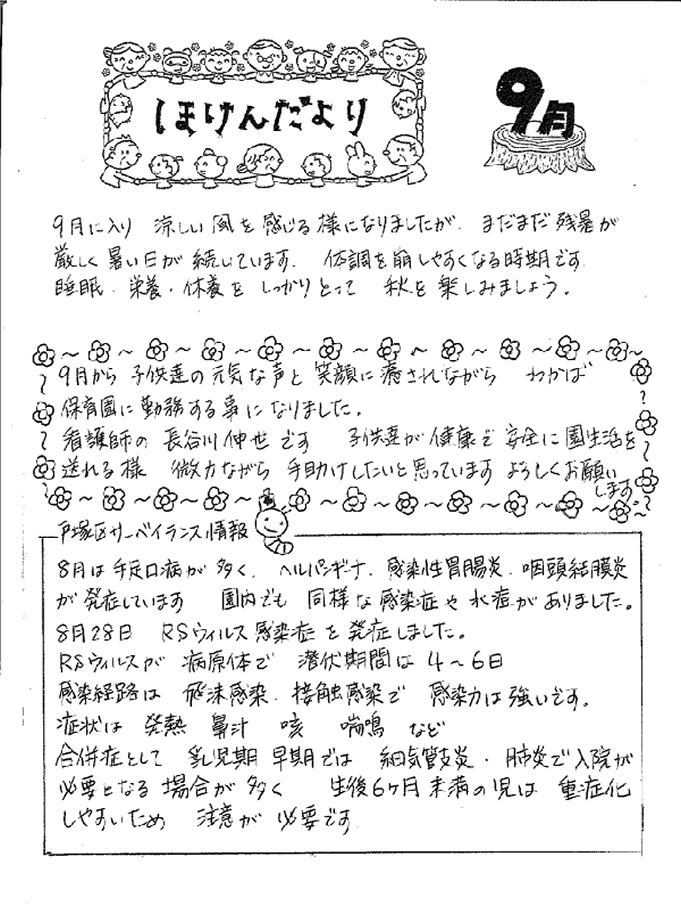 ほけんだより
9月
9月に入り 涼しい風を感じる様になりましたが、まだまだ残暑が
厳しく暑い日が続いています。 体調を崩しやすくなる時期です
睡眠・栄養・休養を しっかりとって 秋を楽しみましょう。
9月から 子供達の元気な声と 笑顔に癒されながら わかば
保育園に勤務する事になりました。
看護師の 長谷川伸世です 子供達が健康で安全に園生活を
送れる様 微力ながら 手助けしたいと思っています よろしくお願い
します。
戸塚区サーベイランス情報
8月は手足口病が多く、ヘルパンギーナ、感染性胃腸炎、咽頭結膜炎
が発症しています 園内でも 同様な感染症や水痘がありました。
8月28日 RSウィルス感染症を発症しました。
RSウィルスが 病原体で 潜伏期間は 4〜6日
感染経路は 飛沫感染、接触感染で 感染力は強いです。
症状は 発熱 鼻汁 咳 喘鳴 など
合併症として 乳児期早期では 細気管支炎・肺炎で入院が
必要となる場合が多く 生後6ヶ月未満の児は 重症化
しやすいため 注意が必要です